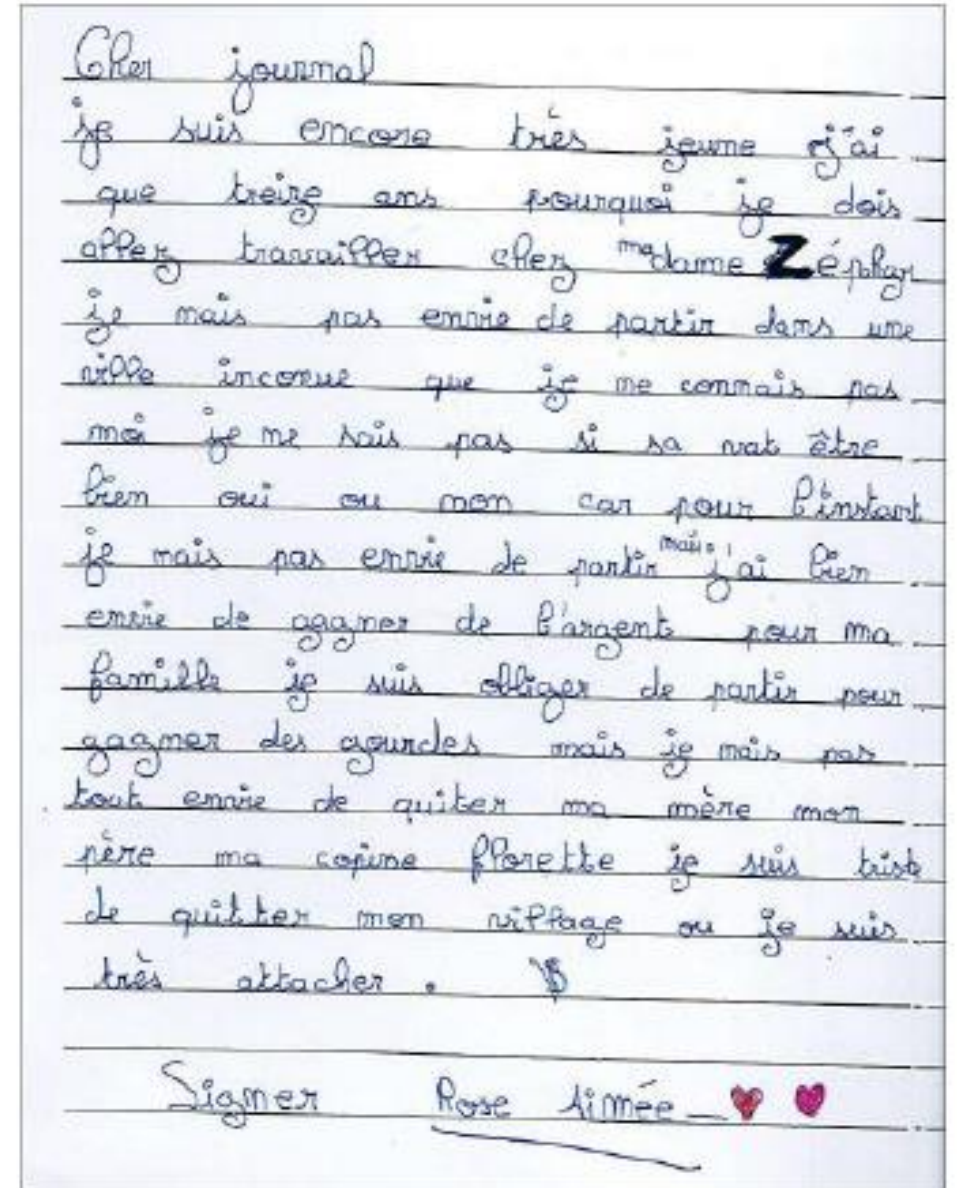 Cher journal
je suis encore très jeune j'ai
que treize ans pourquoi je dois
allez travailler chez madame Zéphyr
je mais pas envie de partir dans une
ville inconue que je me connais pas
moi je ne sais pas si sa vat être
bien oui ou non car pour l'instant
je mais pas envie de partir mais j'ai bien
envie de gagner de l'argent pour ma
famille je suis obliger de partir pour
gagner des gourdes mais je mais pas
tout envie de quiter ma mère mon
père ma copine florette je suis triste
de quitter mon village ou je suis
très attacher.
Signer Rose Aimée